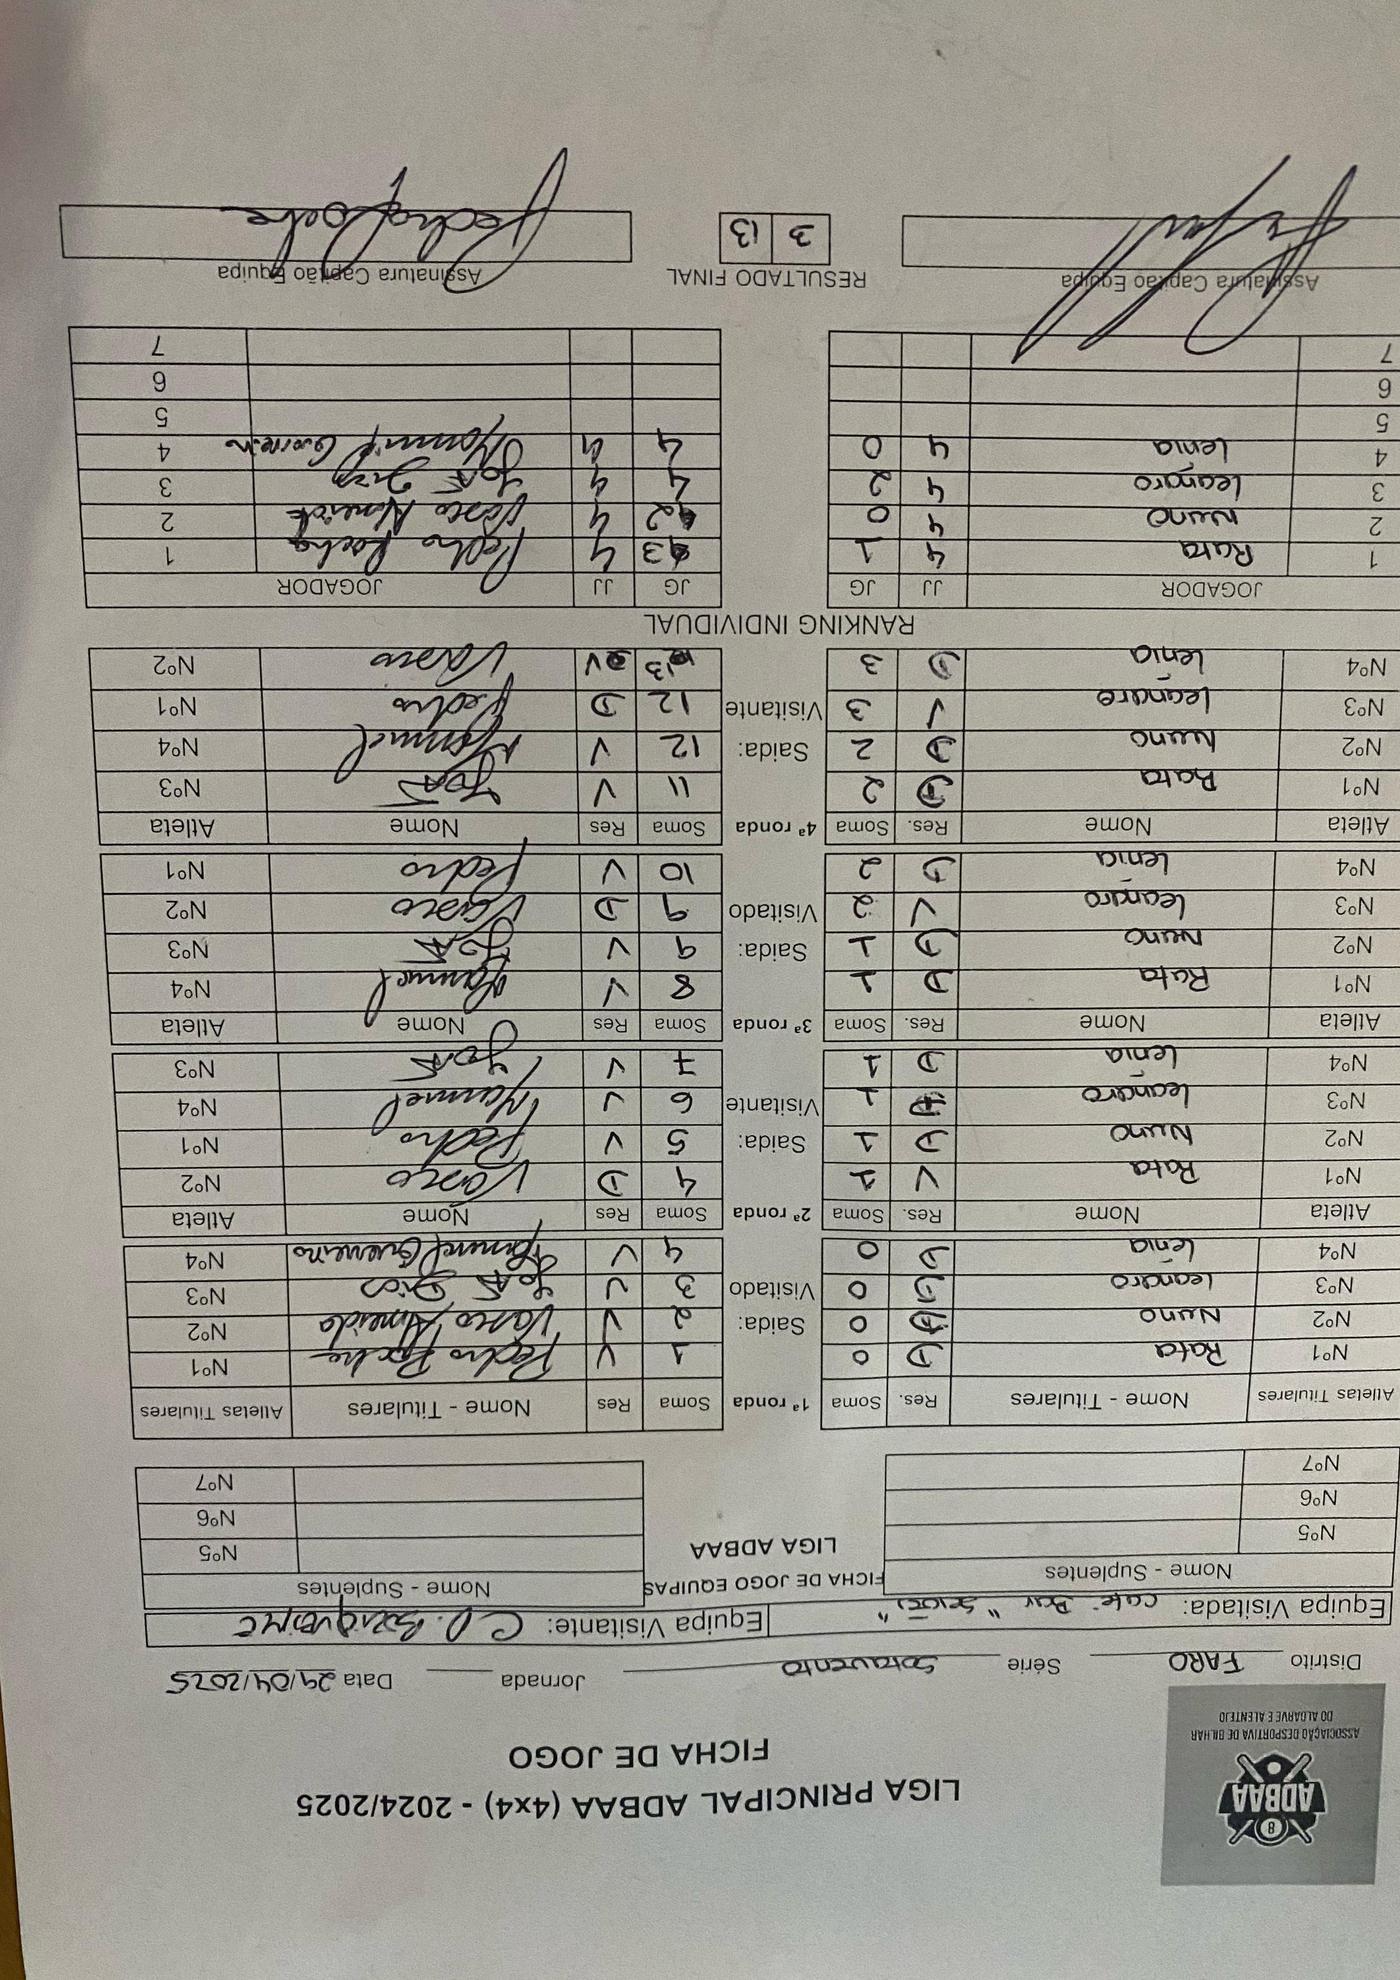 ADBAA
ASSOCIAÇÃO DESPORTIVA DE BILHAR
DO ALGARVE E ALENTEJO
LIGA PRINCIPAL ADBAA (4x4) - 2024/2025
FICHA DE JOGO
Distrito FARO Série Sotavento Jornada Data 29/04/2025
Equipa Visitada: Café Bar Equipa Visitante: C.D.
Nome - Suplentes FICHA DE JOGO EQUIPAS Nome - Suplentes
Nº5 LIGA ADBAA Nº5
Nº6 Nº6
Nº7 Nº7
Atletas Titulares Nome - Titulares Res. Soma 1ª ronda Soma Res Nome - Titulares Atletas Titulares
Nº1 Rata D 0 1 V Pedro Rocha Nº1
Nº2 Nuno D 0 Saida: 2 V Vasco Almeida Nº2
Nº3 Leandro D 0 Visitado 3 V José Dias Nº3
Nº4 Lenia D 0 4 V Manuel Guerreiro Nº4
Atleta Nome Res. Soma 2ª ronda Soma Res Nome Atleta
Nº1 Rata V 1 4 D Vasco Nº2
Nº2 Nuno D 1 Saida: 5 V Pedro Nº1
Nº3 Leandro D 1 Visitante 6 V Manuel Nº4
Nº4 Lenia D 1 7 V José Nº3
Atleta Nome Res. Soma 3ª ronda Soma Res Nome Atleta
Nº1 Rata D 1 8 V Manuel Nº4
Nº2 Nuno D 1 Saida: 9 V José Nº3
Nº3 Leandro V 2 Visitado 9 D Vasco Nº2
Nº4 Lenia D 2 10 V Pedro Nº1
Atleta Nome Res. Soma 4ª ronda Soma Res Nome Atleta
Nº1 Rata D 2 11 V José Nº3
Nº2 Nuno D 2 Saida: 12 V Manuel Nº4
Nº3 Leandro V 3 Visitante 12 D Pedro Nº1
Nº4 Lenia D 3 13 V Vasco Nº2
RANKING INDIVIDUAL
JOGADOR JJ JG JG JJ JOGADOR
1 Rata 4 1 3 4 Pedro Rocha 1
2 Nuno 4 0 2 4 Vasco Almeida 2
3 Leandro 4 2 4 4 José Dias 3
4 Lenia 4 0 4 4 Manuel Guerreiro 4
5 5
6 6
7 7
Assinatura Capitão Equipa RESULTADO FINAL Assinatura Capitão Equipa
3 13 Pedro Rocha